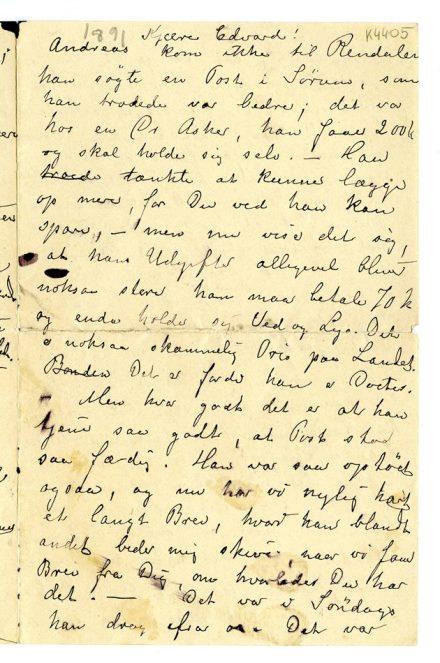 1891
K4405
Kjære Edvard!
Andreas kom ikke til Rendalen
han søgte en Post i Sørum, som
han troede var bedre; det var
hos en Dr Asker, han faaer 200 k
og skal holde sig selv. — Han
troede tænkte at kunne lægge
op mere, for Du ved han kan
spare, — men nu viser det sig,
at hans Udgifter alligevel bliver
noksaa store han maa betale 70 k
og endu holde sig Ved og Lys. Det
e noksaa skammelig Pris paa Landet.
Bonden Det er fordi han er Doctor.
— Men hvor godt det er at han
tjene saa godt, at Post stod
saa færdig. Han var saa ophöiet
ogsaa, og nu har vi nylig havt
et langt Brev, hvori han blandt
andet beder mig skrive, naar vi faar
Brev fra Dig, om hvorledes Du har
det. — Det var i Söndags
han drog Det var